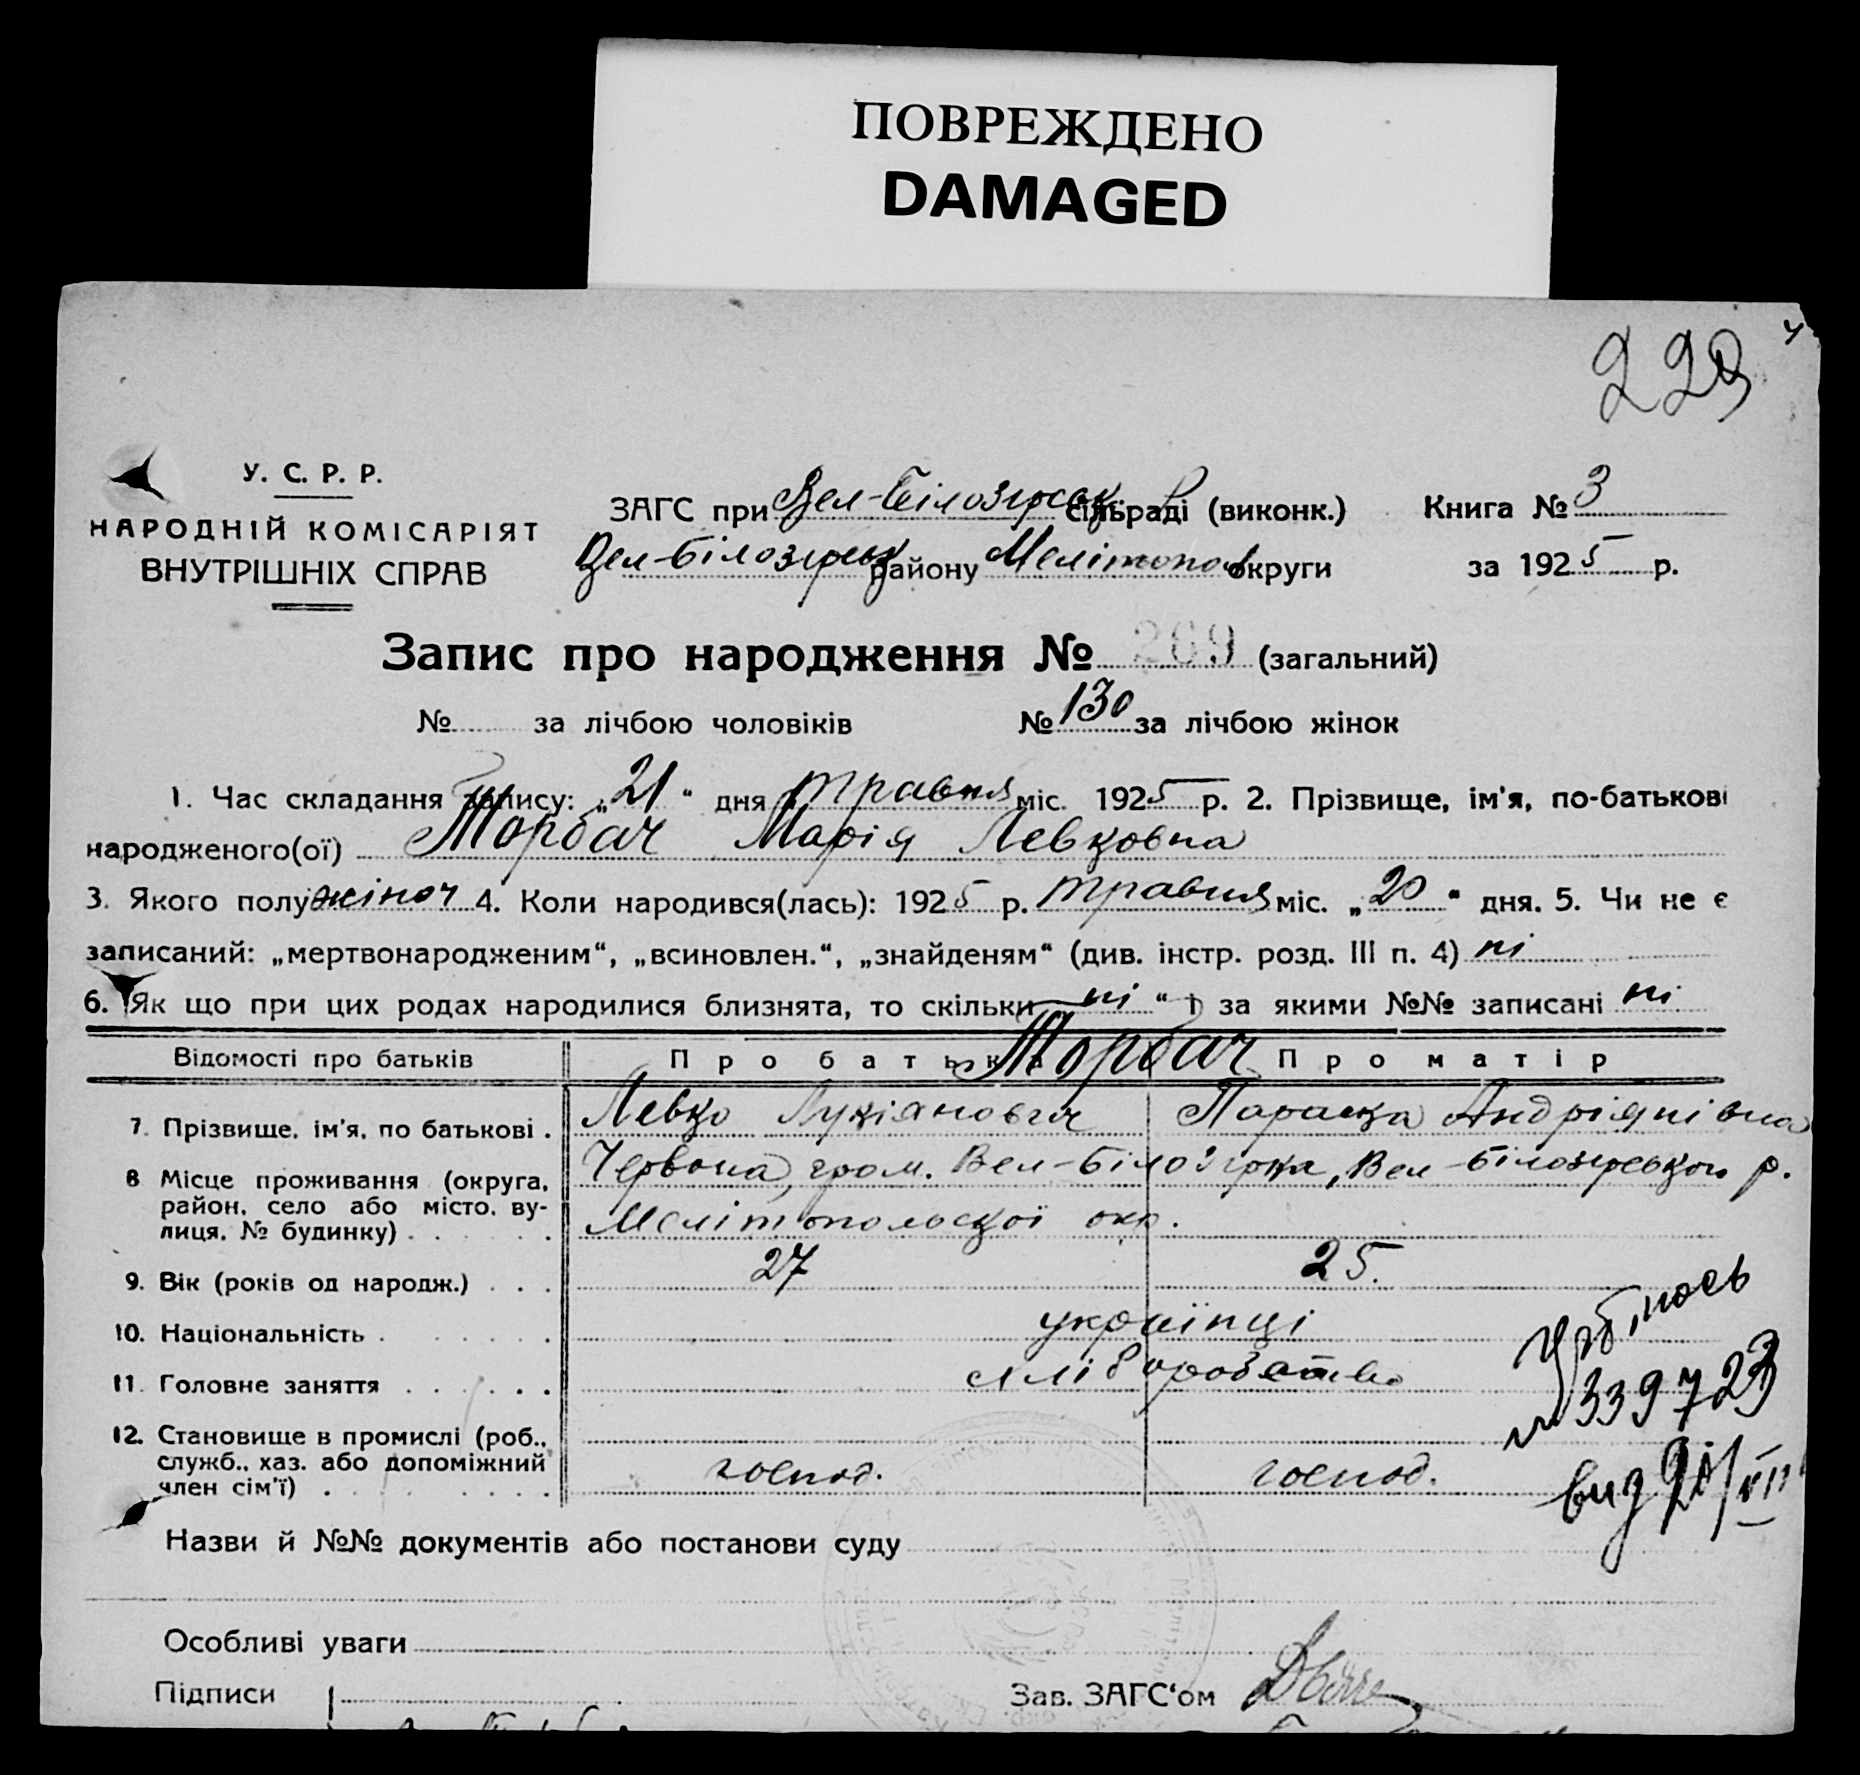 ПОВРЕЖДЕНО
DAMAGED
229
У. С. Р. Р.
НАРОДНІЙ КОМІСАРІЯТ
ВНУТРІШНІХ СПРАВ
ЗАГС при Вел-Білозірськ сільраді (виконк.) Книга № 3
Вел-Білозірськ району Мелітопол округи за 1925 р.
Запис про народження № 269 (загальний)
№ за лічбою чоловіків № 130 за лічбою жінок
1. Час складання запису: „21“ дня травня міс. 1925 р. 2. Прізвище, ім'я, по-батькові
народженого(ої) Торбач Марія Левковна
3. Якого полу жіноч 4. Коли народився(лась): 1925 р. травня міс. „20“ дня. 5. Чи не є
записаний: „мертвонародженим“, „всиновлен.“, „знайденям“ (див. інстр. розд. III п. 4) ні
6. Як що при цих родах народилися близнята, то скільки ні “ і за якими №№ записані ні
Відомості про батьків Про батька Торбач Про матір
7. Прізвище, ім'я, по батькові . Левко Лукіянович Параска Андріянівна
8 Місце проживання (округа, район, село або місто, вулиця, № будинку) Червона, гром. Вел-Білозірка, Вел-Білозірського р.
Мелітопольської окр.
9. Вік (років од народж.) . . . 27 25.
10. Національність . українці
11. Головне заняття хліборобство
12. Становище в промислі (роб., служб., хаз. або допоміжний член сім'ї) господ. господ.
№ 339723
вид
Назви й №№ документів або постанови суду
Особливі уваги
Підписи Зав. ЗАГС'ом